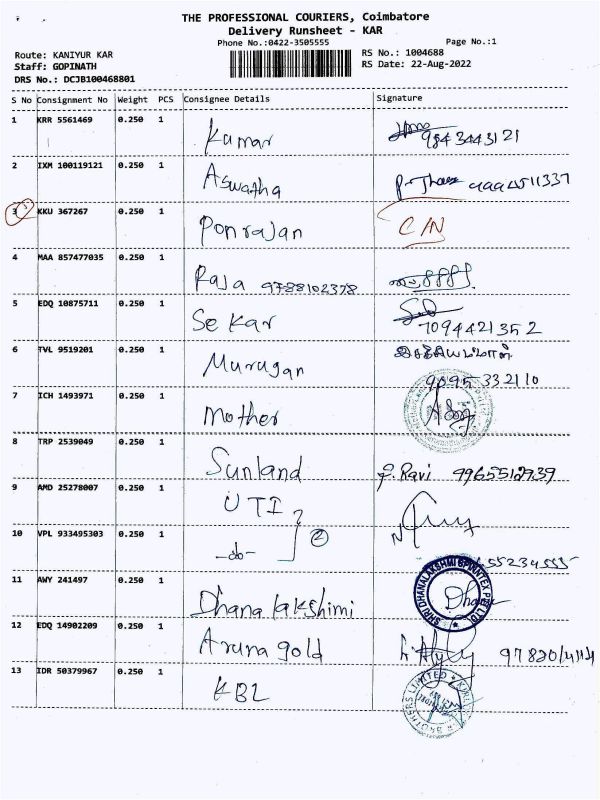 THE PROFESSIONAL COURIERS, Coimbatore
Delivery Runsheet - KAR
Phone No.:0422-3505555 Page No.:1
Route: KANIYUR KAR RS No.: 1004688
Staff: GOPINATH RS Date: 22-Aug-2022
DRS No.: DCJB100468801
S No Consignment No Weight PCS Consignee Details Signature
1 KRR 5561469 0.250 1 Kumar 9843443121
2 IXM 100119121 0.250 1 Aswatha
3 KKU 367267 0.250 1 Ponrajan C/N
4 MAA 857477035 0.250 1 Raja 9788102378
5 EDQ 10875711 0.250 1 Sekar 7094421352
6 TVL 9519201 0.250 1 Murugan 9095 332110
7 ICH 1493971 0.250 1 Mother
8 TRP 2539049 0.250 1 Sunland P. Ravi 9965512939
9 AMD 25278007 0.250 1 UTI
10 VPL 933495303 0.250 1 -do- 2
11 AWY 241497 0.250 1 Dhanalakshimi SHRI DHANALAKSHMI SPINNTEX PVT LTD
12 EDQ 14902209 0.250 1 Aruna gold
13 IDR 50379967 0.250 1 KBL